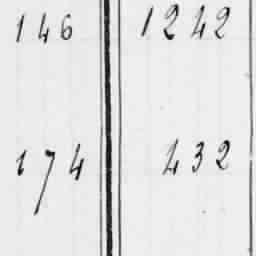 146 1242
174 432